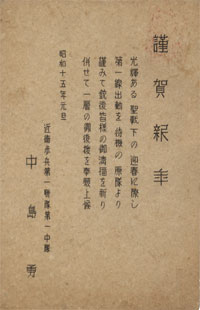 謹賀新年
光輝ある聖戦下の迎春に際し
第一線出動を待機の原隊より
謹みて銃後皆様の御満福を祈り
併せて一層の御後援を奉懇上候
昭和十五年元旦
近衛歩兵第一聯隊第一中隊
中島勇